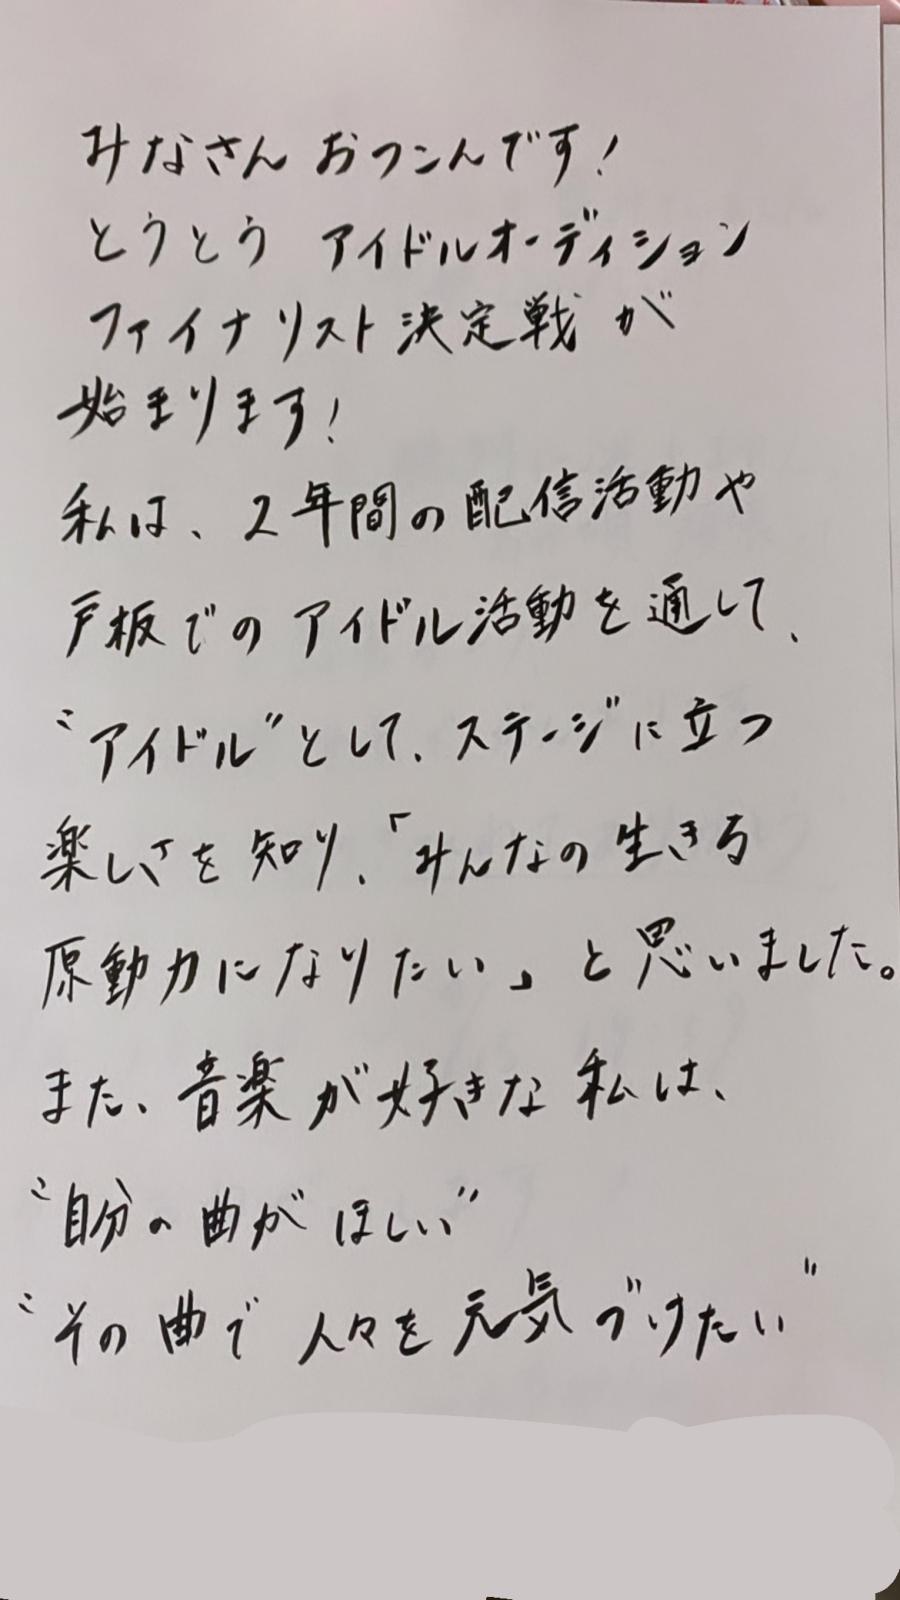 みなさん おつこんです!
とうとう アイドルオーディション
ファイナリスト決定戦 が
始まります!
私は、2年間の配信活動や
戸板でのアイドル活動を通して、
"アイドル"として、ステージに立つ
楽しさを知り、「みんなの生きる
原動力になりたい」と思いました。
また、音楽が好きな私は、
"自分の曲がほしい"
"その曲で人々を元気づけたい"